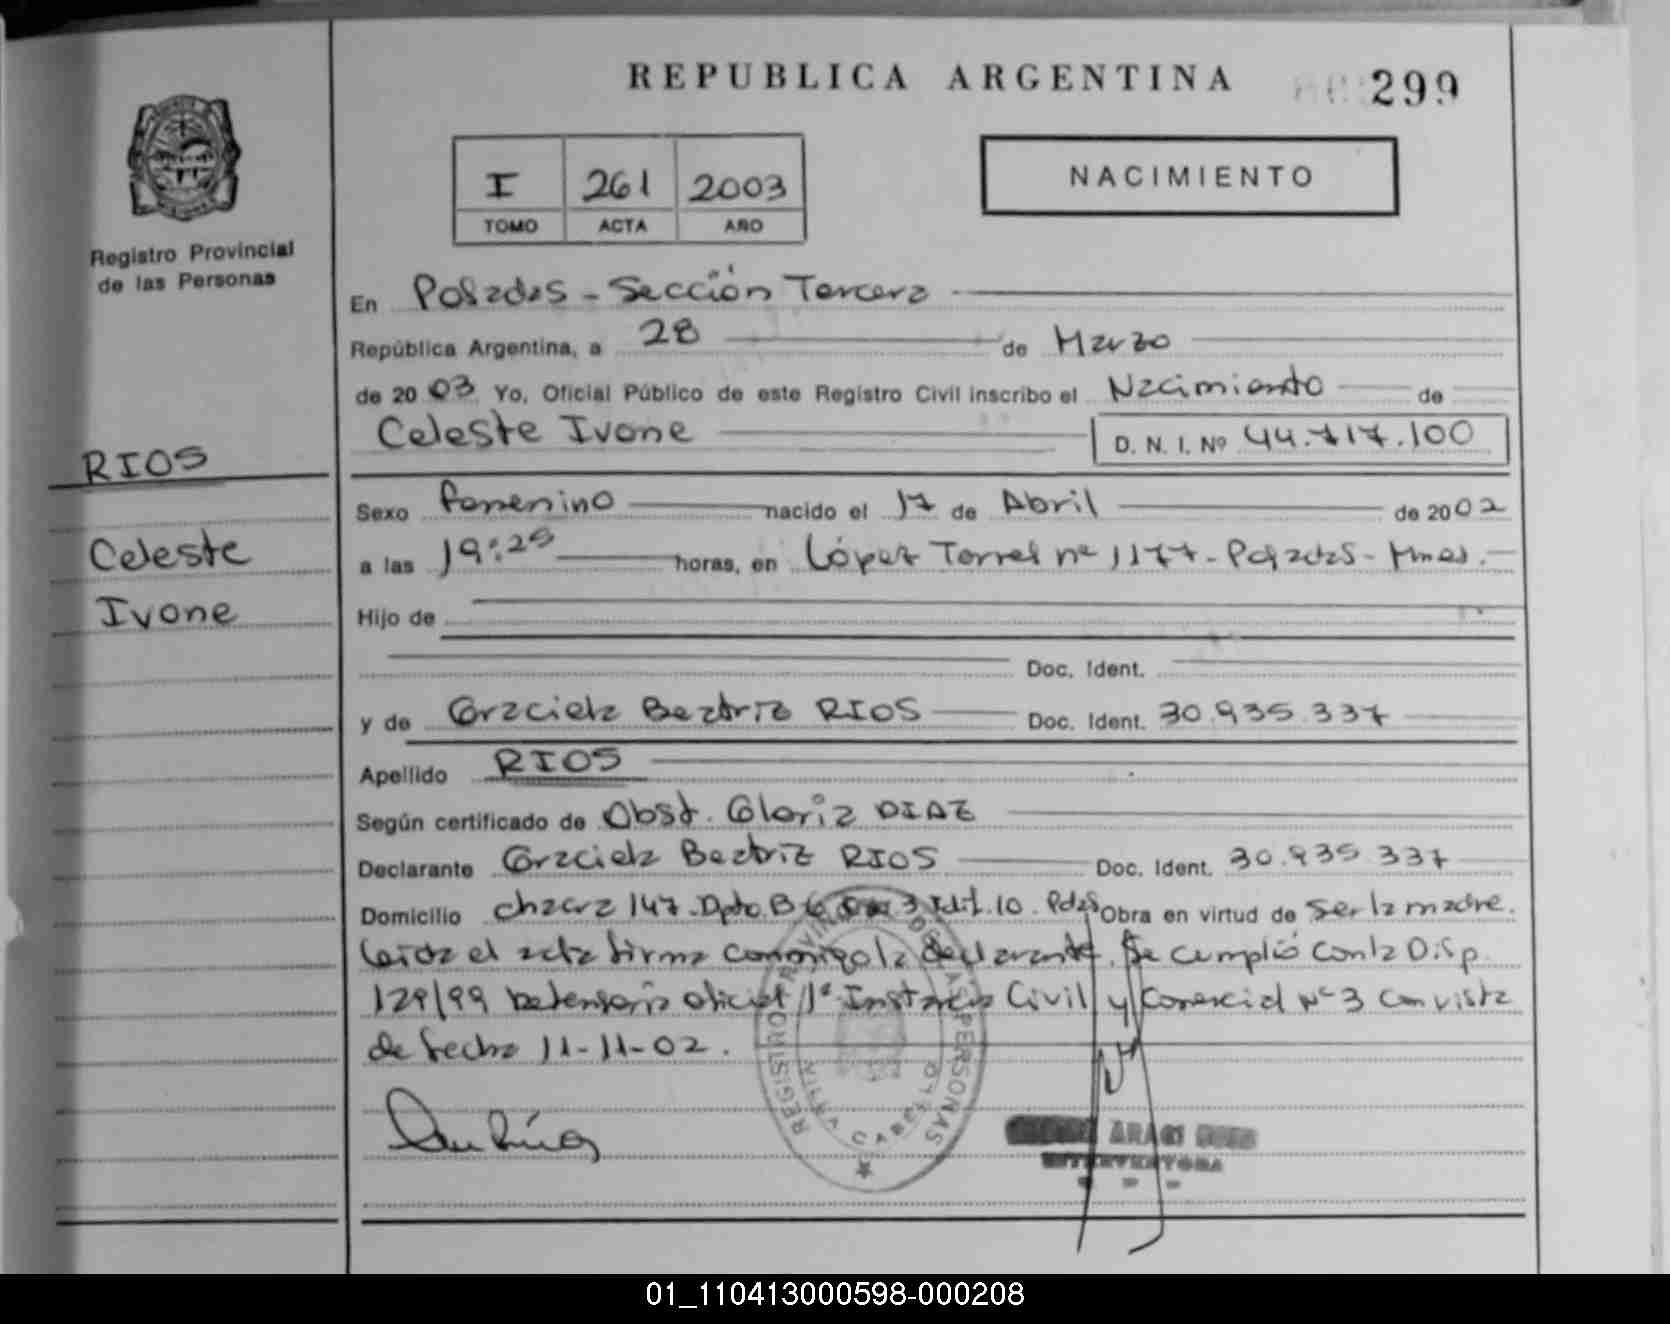 REPUBLICA ARGENTINA
299
I 261 2003
TOMO ACTA AÑO
NACIMIENTO
Registro Provincial
de las Personas
En Posadas - Sección Tercera
República Argentina, a 28 de Marzo
de 20 03 Yo, Oficial Público de este Registro Civil inscribo el Nacimiento de
Celeste Ivone D. N. I. Nº 44.717.100
RIOS
Celeste
Ivone
Sexo femenino nacido el 17 de Abril de 2002
a las 19:25 horas, en López Torres nº 1177 - Posadas - Mnes.
Hijo de
Doc. Ident.
y de Graciela Beatriz RIOS Doc. Ident. 30.935.337
Apellido RIOS
Según certificado de Obst. Gloria DIAZ
Declarante Graciela Beatriz RIOS Doc. Ident. 30.935.337
Domicilio chacra 147. Dpto. B 3 Edif. 10. Pdas Obra en virtud de ser la madre.
Leida el acta firma conmigo la declarante. Se cumplió con la Disp.
129/99 Defensoria oficial 1º Instancia Civil y Comercial Nº 3 con vista
de fecha 11-11-02.
REGISTRO PROVINCIAL DE LAS PERSONAS
VILLA CABELLO
ARACI
INTERVENTORA
01_110413000598-000208